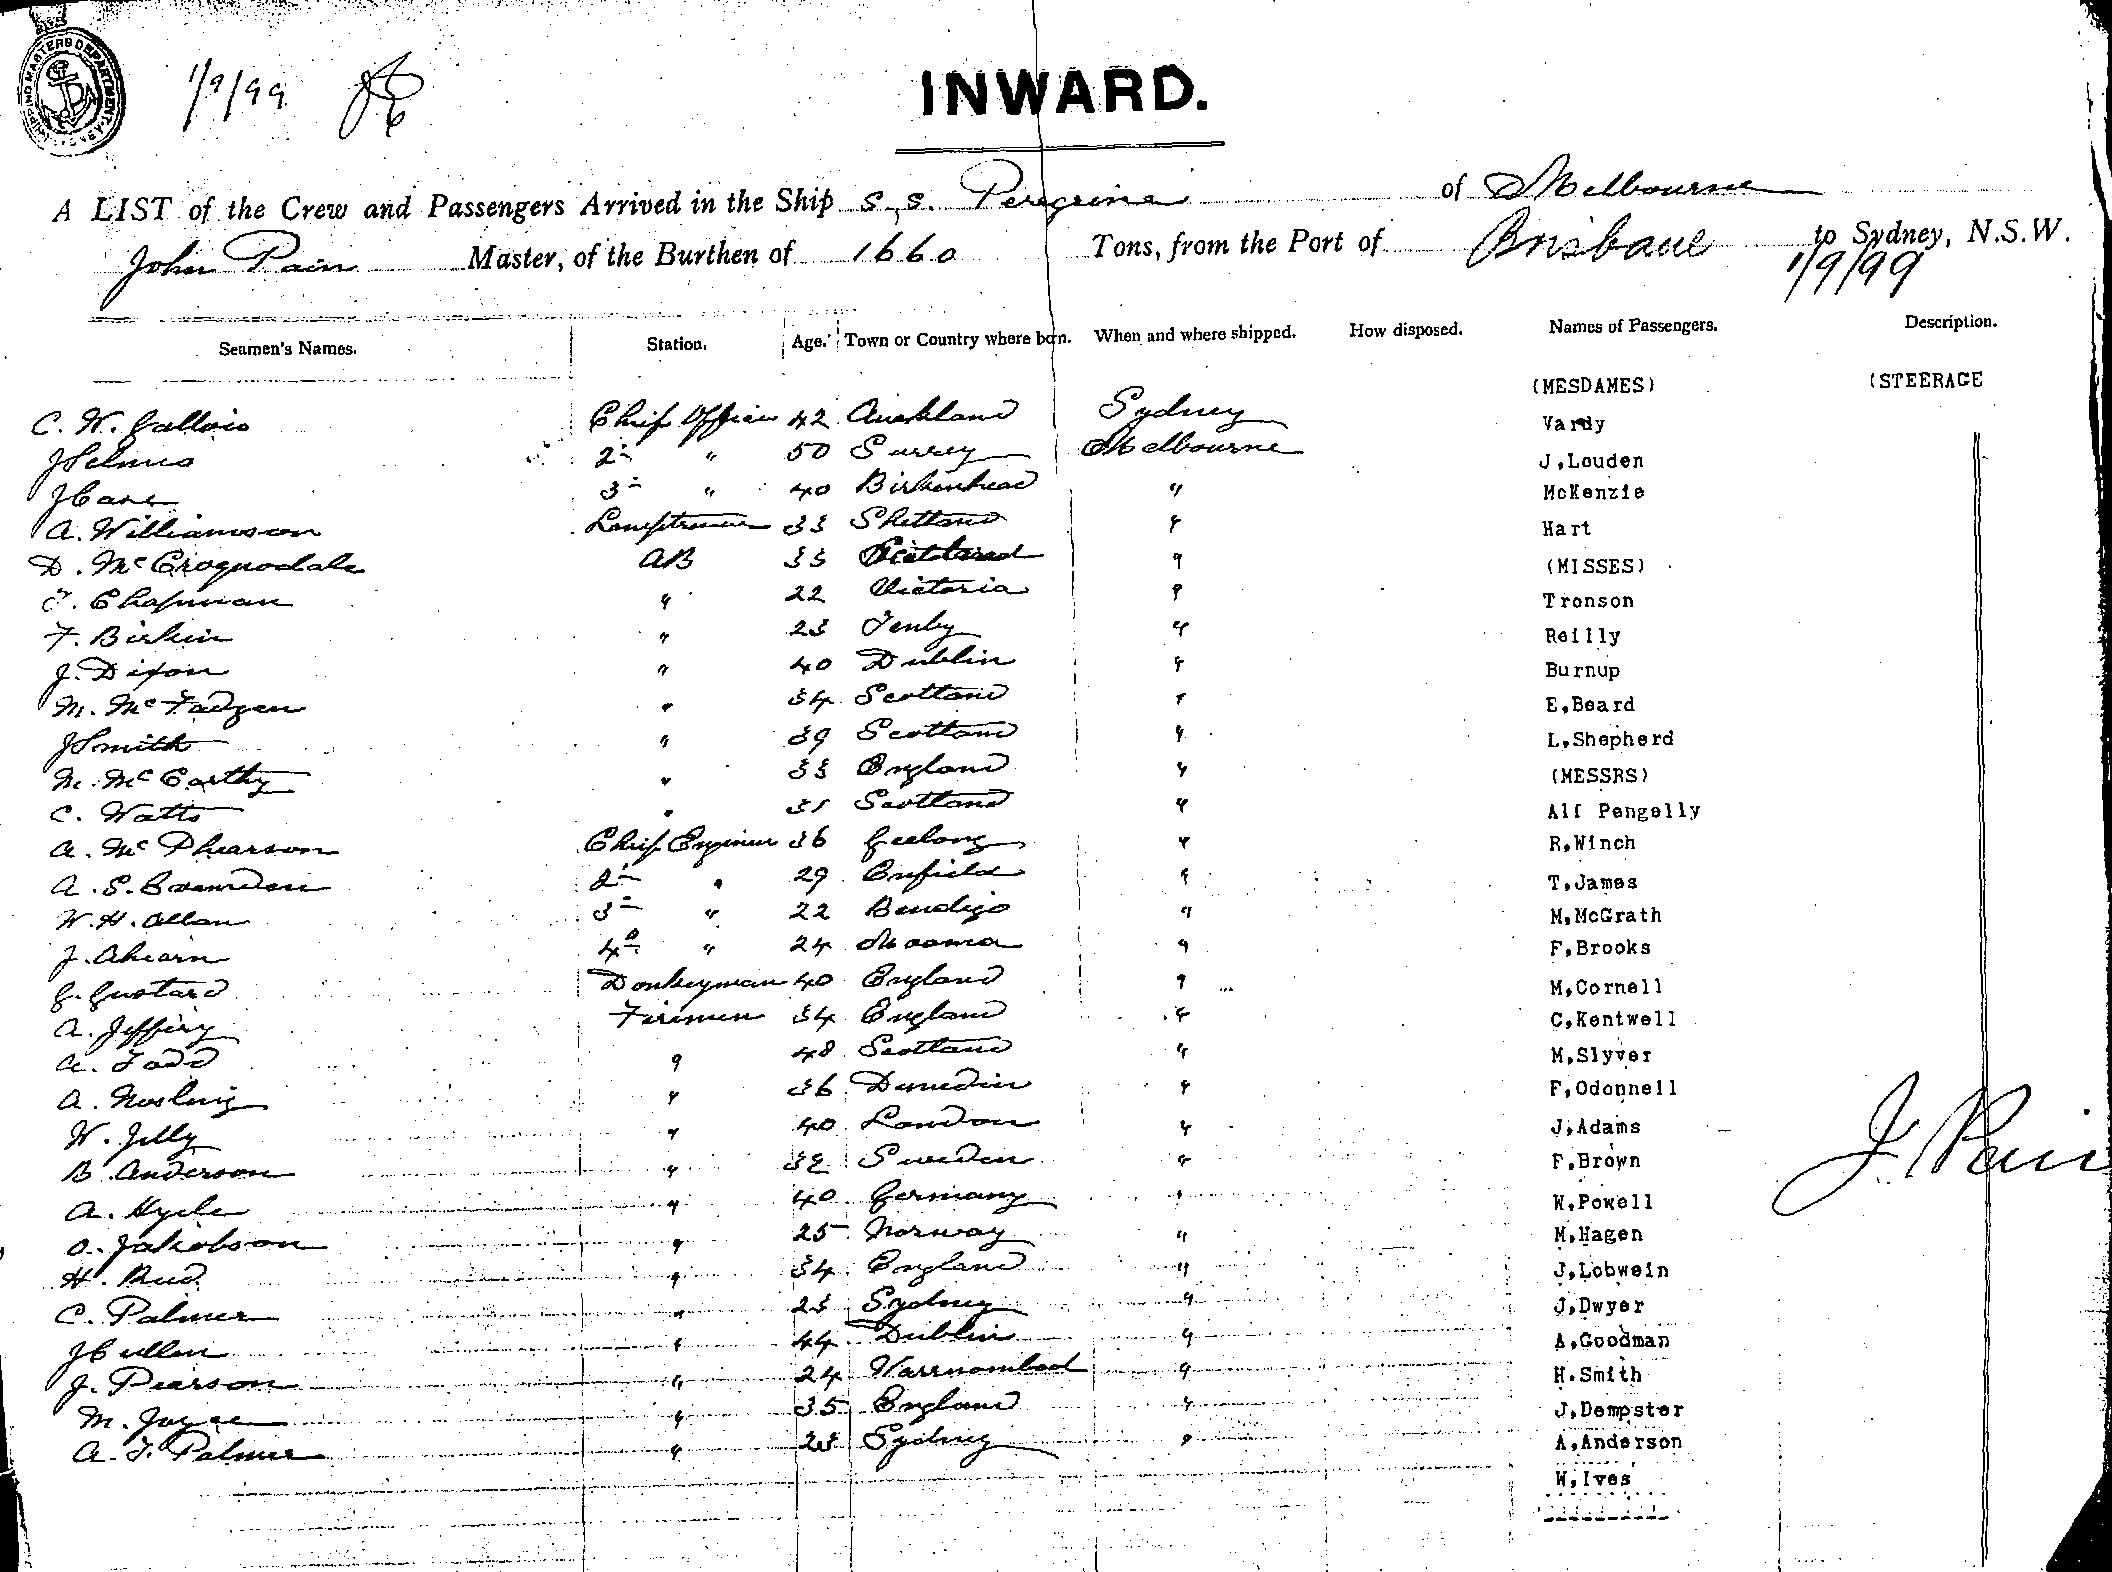 SHIPPING MASTERS DEPARTMENT
1/9/99
INWARD.
A LIST of the Crew and Passengers Arrived in the Ship s.s. Peregrine of Melbourne
John Pain Master, of the Burthen of 1660 Tons, from the Port of Brisbane to Sydney, N.S.W.
1/9/99
Seamen's Names. Station. Age. Town or Country where born. When and where shipped. How disposed. Names of Passengers. Description.
(MESDAMES) (STEERAGE
C. W. Gallois Chief Officer 42 Auckland Sydney Vardy
J Selmes 2nd " 50 Surrey Melbourne J,Louden
J Cane 3rd " 40 Birkenhead " McKenzie
A. Williamson Lamptrimmer 33 Shetland " Hart
D. McCroquodale AB 33 " (MISSES)
Chapman " 22 Victoria " Tronson
F. Birkin " 23 Tenby " Reilly
J. Dixon " 40 Dublin " Burnup
M. McFadgen " 34 Scotland " E,Beard
J Smith " 39 Scotland " L,Shepherd
M. McCarthy " 33 England " (MESSRS)
C. Watts " 31 Scotland " Alf Pengelly
A. McPhearson Chief Engineer 36 Geelong " R,Winch
A. S. 2nd " 29 Enfield " T,James
W. H. Allan 3rd " 22 Bendigo " M,McGrath
J. Ahearn 4th " 24 Moama " F,Brooks
G. Gustard Donkeyman 40 England " M,Cornell
A. Jeffery Firemen 34 England " C,Kentwell
A. Todd " 48 Scotland " M,Slyver
A. Nosling " 36 Dunedin " F,Odonnell
W. Jelly " 40 London " J,Adams
B. Anderson " 32 Sweden " F,Brown
A. Hyde " 40 Germany " W,Powell
O. Jakobson " 25 Norway " M,Hagen
H. Reid " 34 England " J,Lobwein
C. Palmer " 23 Sydney " J,Dwyer
J Cullen " 44 Dublin " A,Goodman
J. Pearson " 24 Warrnambool " H.Smith
M. Joyce " 35 England " J,Dempster
A. J. Palmer " 23 Sydney " A,Anderson
W,Ives
J. Pain